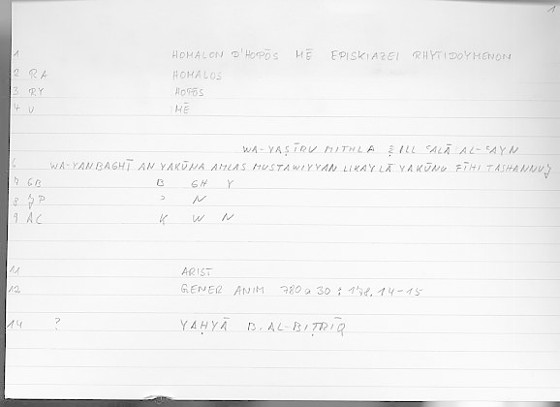 1
1 HOMALON D'HOPŌS MĒ EPISKIAZEI RHYTIDOYMENON
2 RA HOMALOS
3 RY HOPŌS
4 U MĒ
WA-YAṢĪRU MITHLA ẒILL ʿALĀ AL-ʿAYN
6 WA-YANBAGHĪ AN YAKŪNA AMLAS MUSTAWIYYAN LIKAY LĀ YAKŪNU FĪHI TASHANNUJ
7 GB B GH Y
8 JP ʾ N
9 AC K W N
11 ARIST
12 GENER ANIM 780 a 30 : 178.14-15
14 ? YAḤYĀ B. AL-BIṬRĪQ